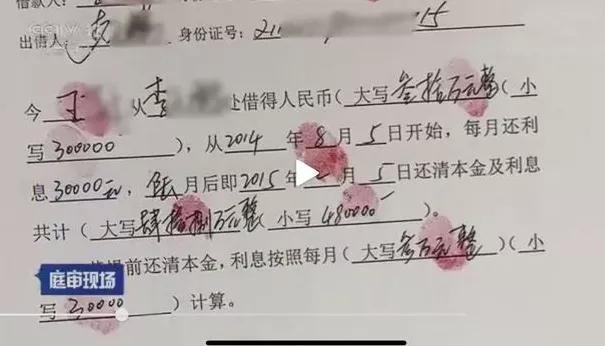 CCTV
借款人：
出借人：李 身份证号：21 15
今 王 从 李 处借得人民币（大写叁拾万元整（小
写300000 ），从2014年8月5日开始，每月还利
息30000元，陆月后即2015年 月5日还清本金及利息
共计（大写肆拾捌万元整 小写480000）。
提前还清本金，利息按照每月（大写叁万元整）（小
写30000 ）计算。
庭审现场